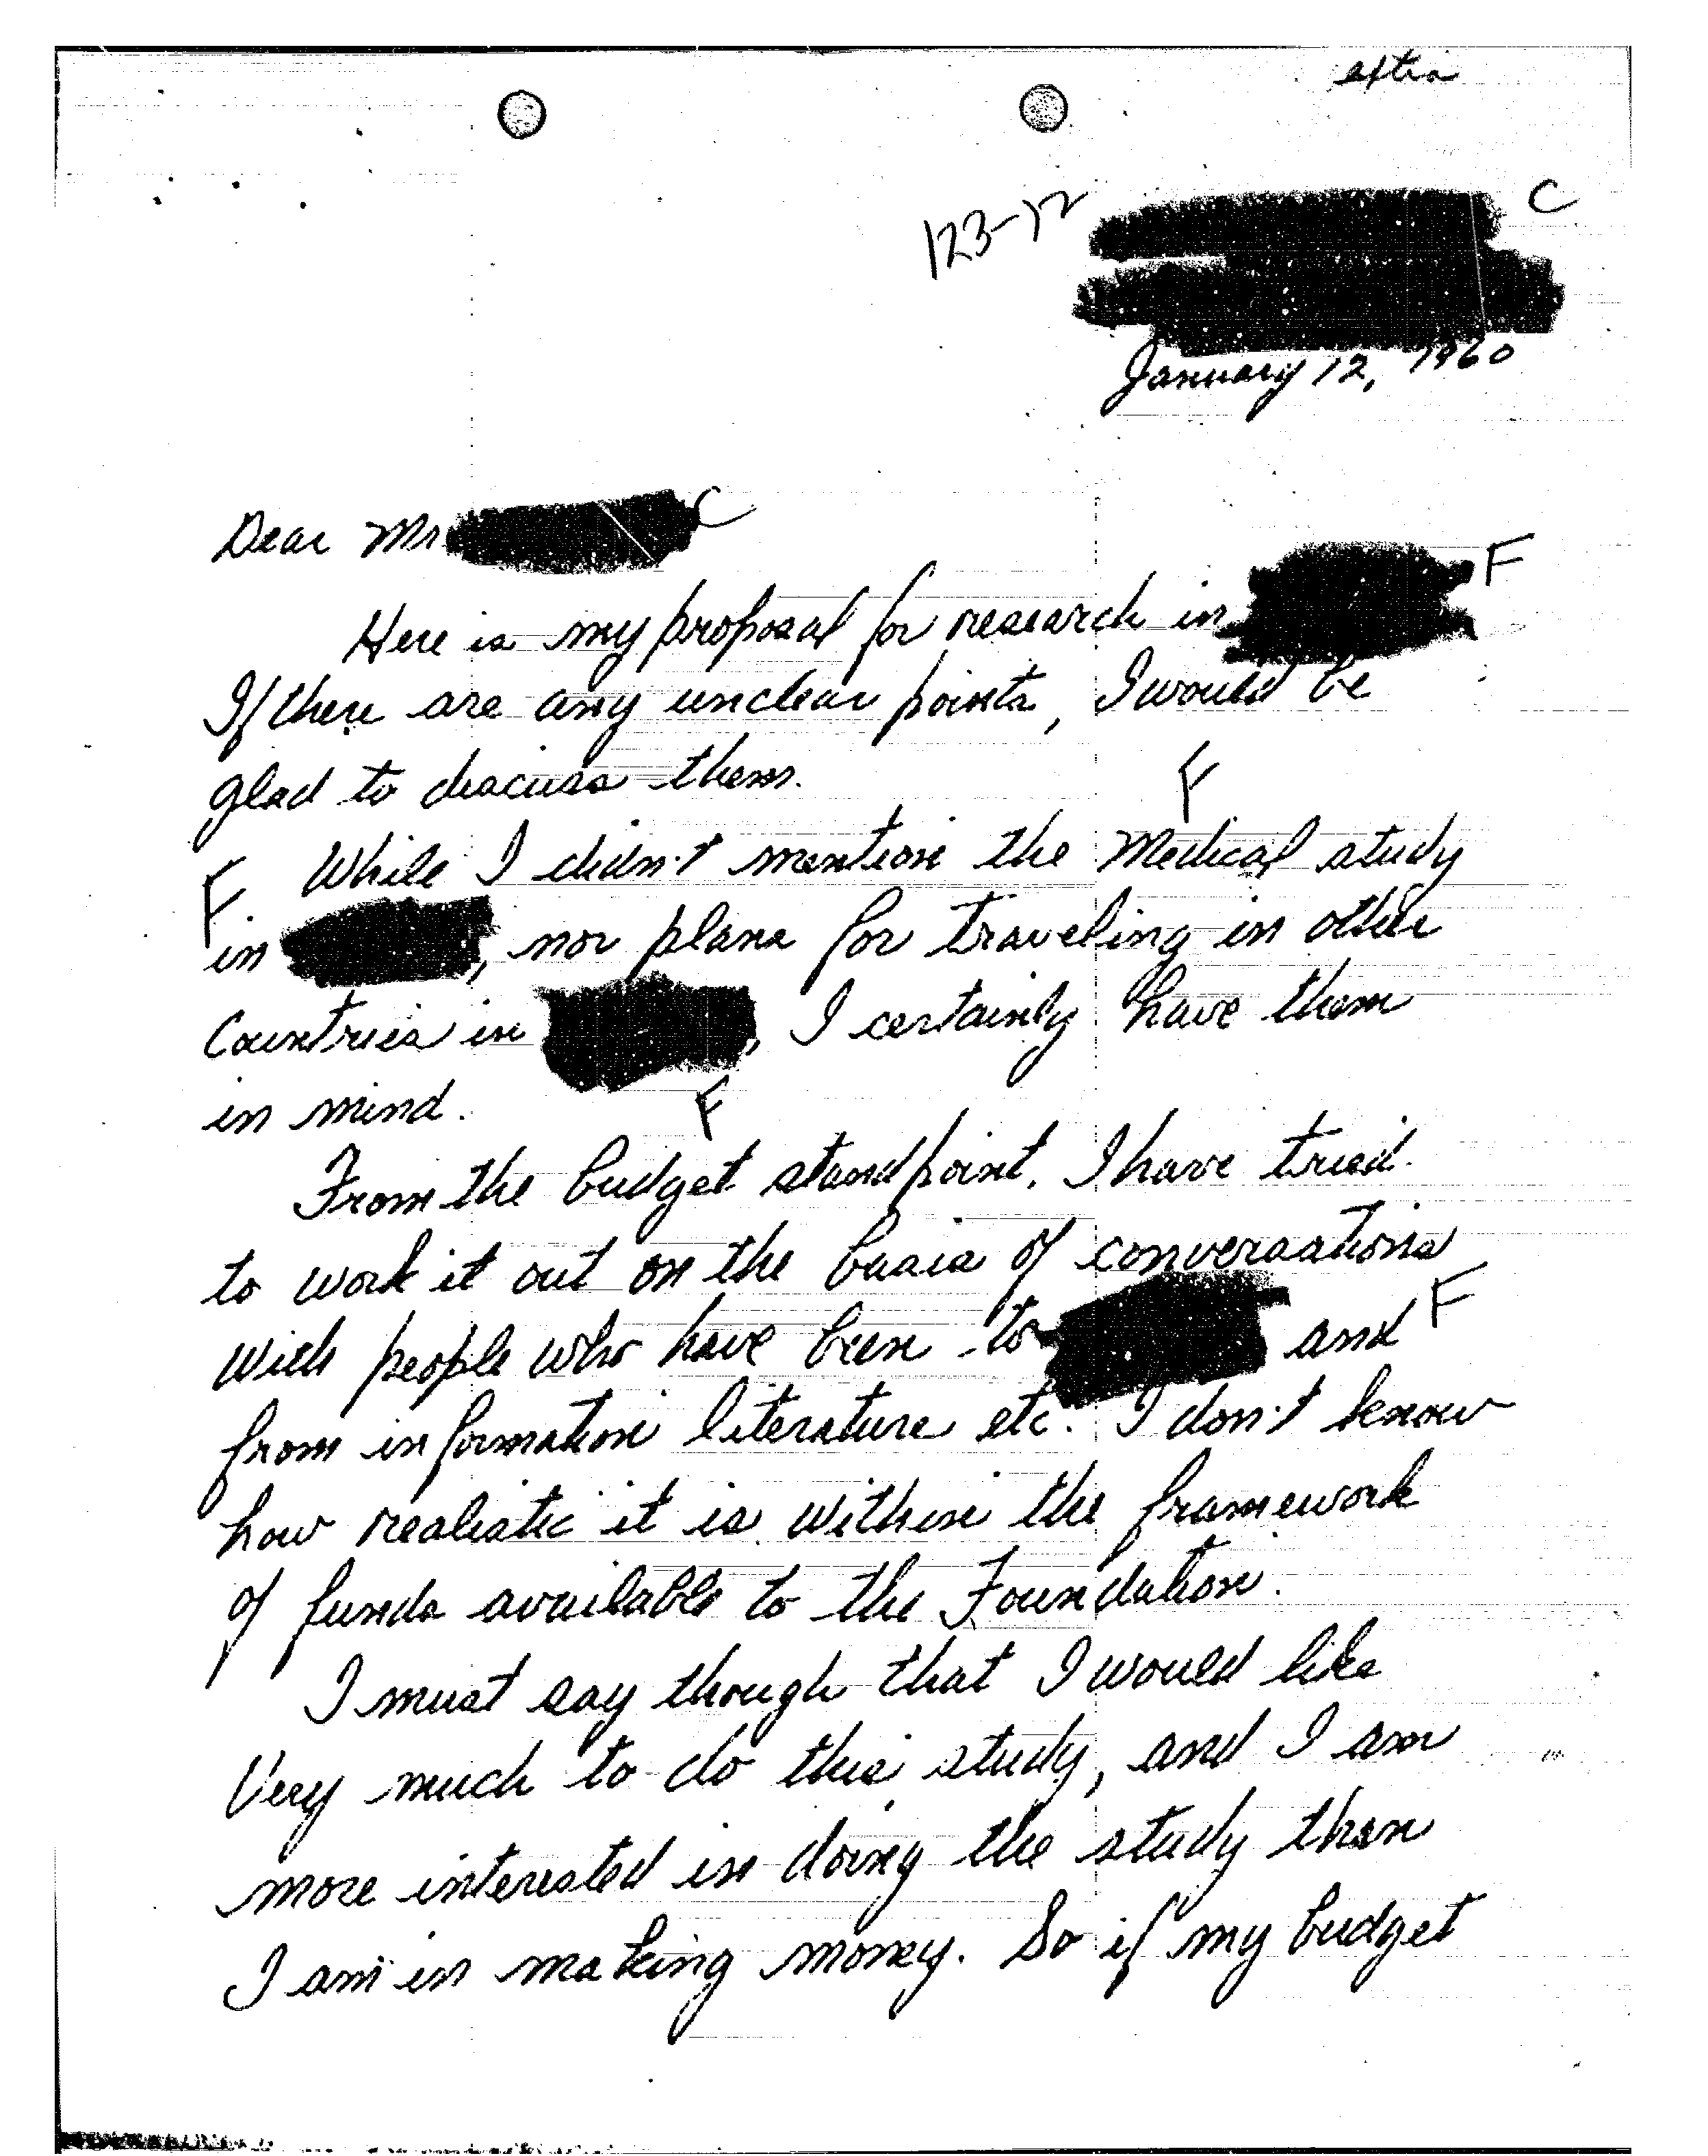 extra
123-72
C
January 12, 1960
Dear Mr C
Here is my proposal for research in F
If there are any unclear points, I would be
glad to discuss them.
F
F While I didn't mention the Medical study
in , nor plans for traveling in other
Countries in , I certainly have them
in mind. F
From the budget standpoint, I have tried
to work it out on the basis of conversations
with people who have been to and F
from information literature etc. I don't know
how realistic it is within the framework
of funds available to the Foundation.
I must say though that I would like
Very much to do this study, and I am
more interested in doing the study than
I am in making money. So if my budget